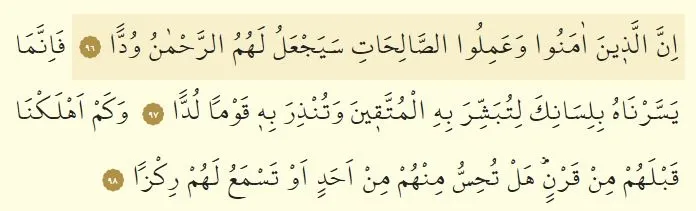 اِنَّ الَّذ۪ينَ اٰمَنُوا وَعَمِلُوا الصَّالِحَاتِ سَيَجْعَلُ لَهُمُ الرَّحْمٰنُ وُدًّا ٩٦ فَاِنَّمَا
يَسَّرْنَاهُ بِلِسَانِكَ لِتُبَشِّرَ بِهِ الْمُتَّق۪ينَ وَتُنْذِرَ بِه۪ قَوْمًا لُدًّا ٩٧ وَكَمْ اَهْلَكْنَا
قَبْلَهُمْ مِنْ قَرْنٍۜ هَلْ تُحِسُّ مِنْهُمْ مِنْ اَحَدٍ اَوْ تَسْمَعُ لَهُمْ رِكْزًا ٩٨